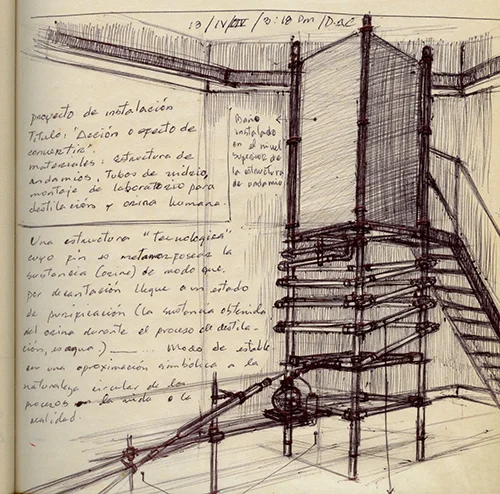 13/IV/ /3:18 pm/D.a.C
proyecto de instalación
Titulo: "Acción o efecto de
convertir".
materiales: estructura de
andamios, tubos de vidrio,
montaje de laboratorio para
destilación y orina humana.
Baño
instalado
en el nivel
superior de
la estructura
de andamio
Una estructura "tecnológica"
cuyo fin es metamorfosear la
sustancia (orine) de modo que
por decantación llegue a un estado
de purificación (la sustancia obtenida
del orina durante el proceso de destila-
ción, es agua.) ... modo de estable
en una aproximación simbólica a la
naturaleza circular de los
procesos en la vida o la
realidad.